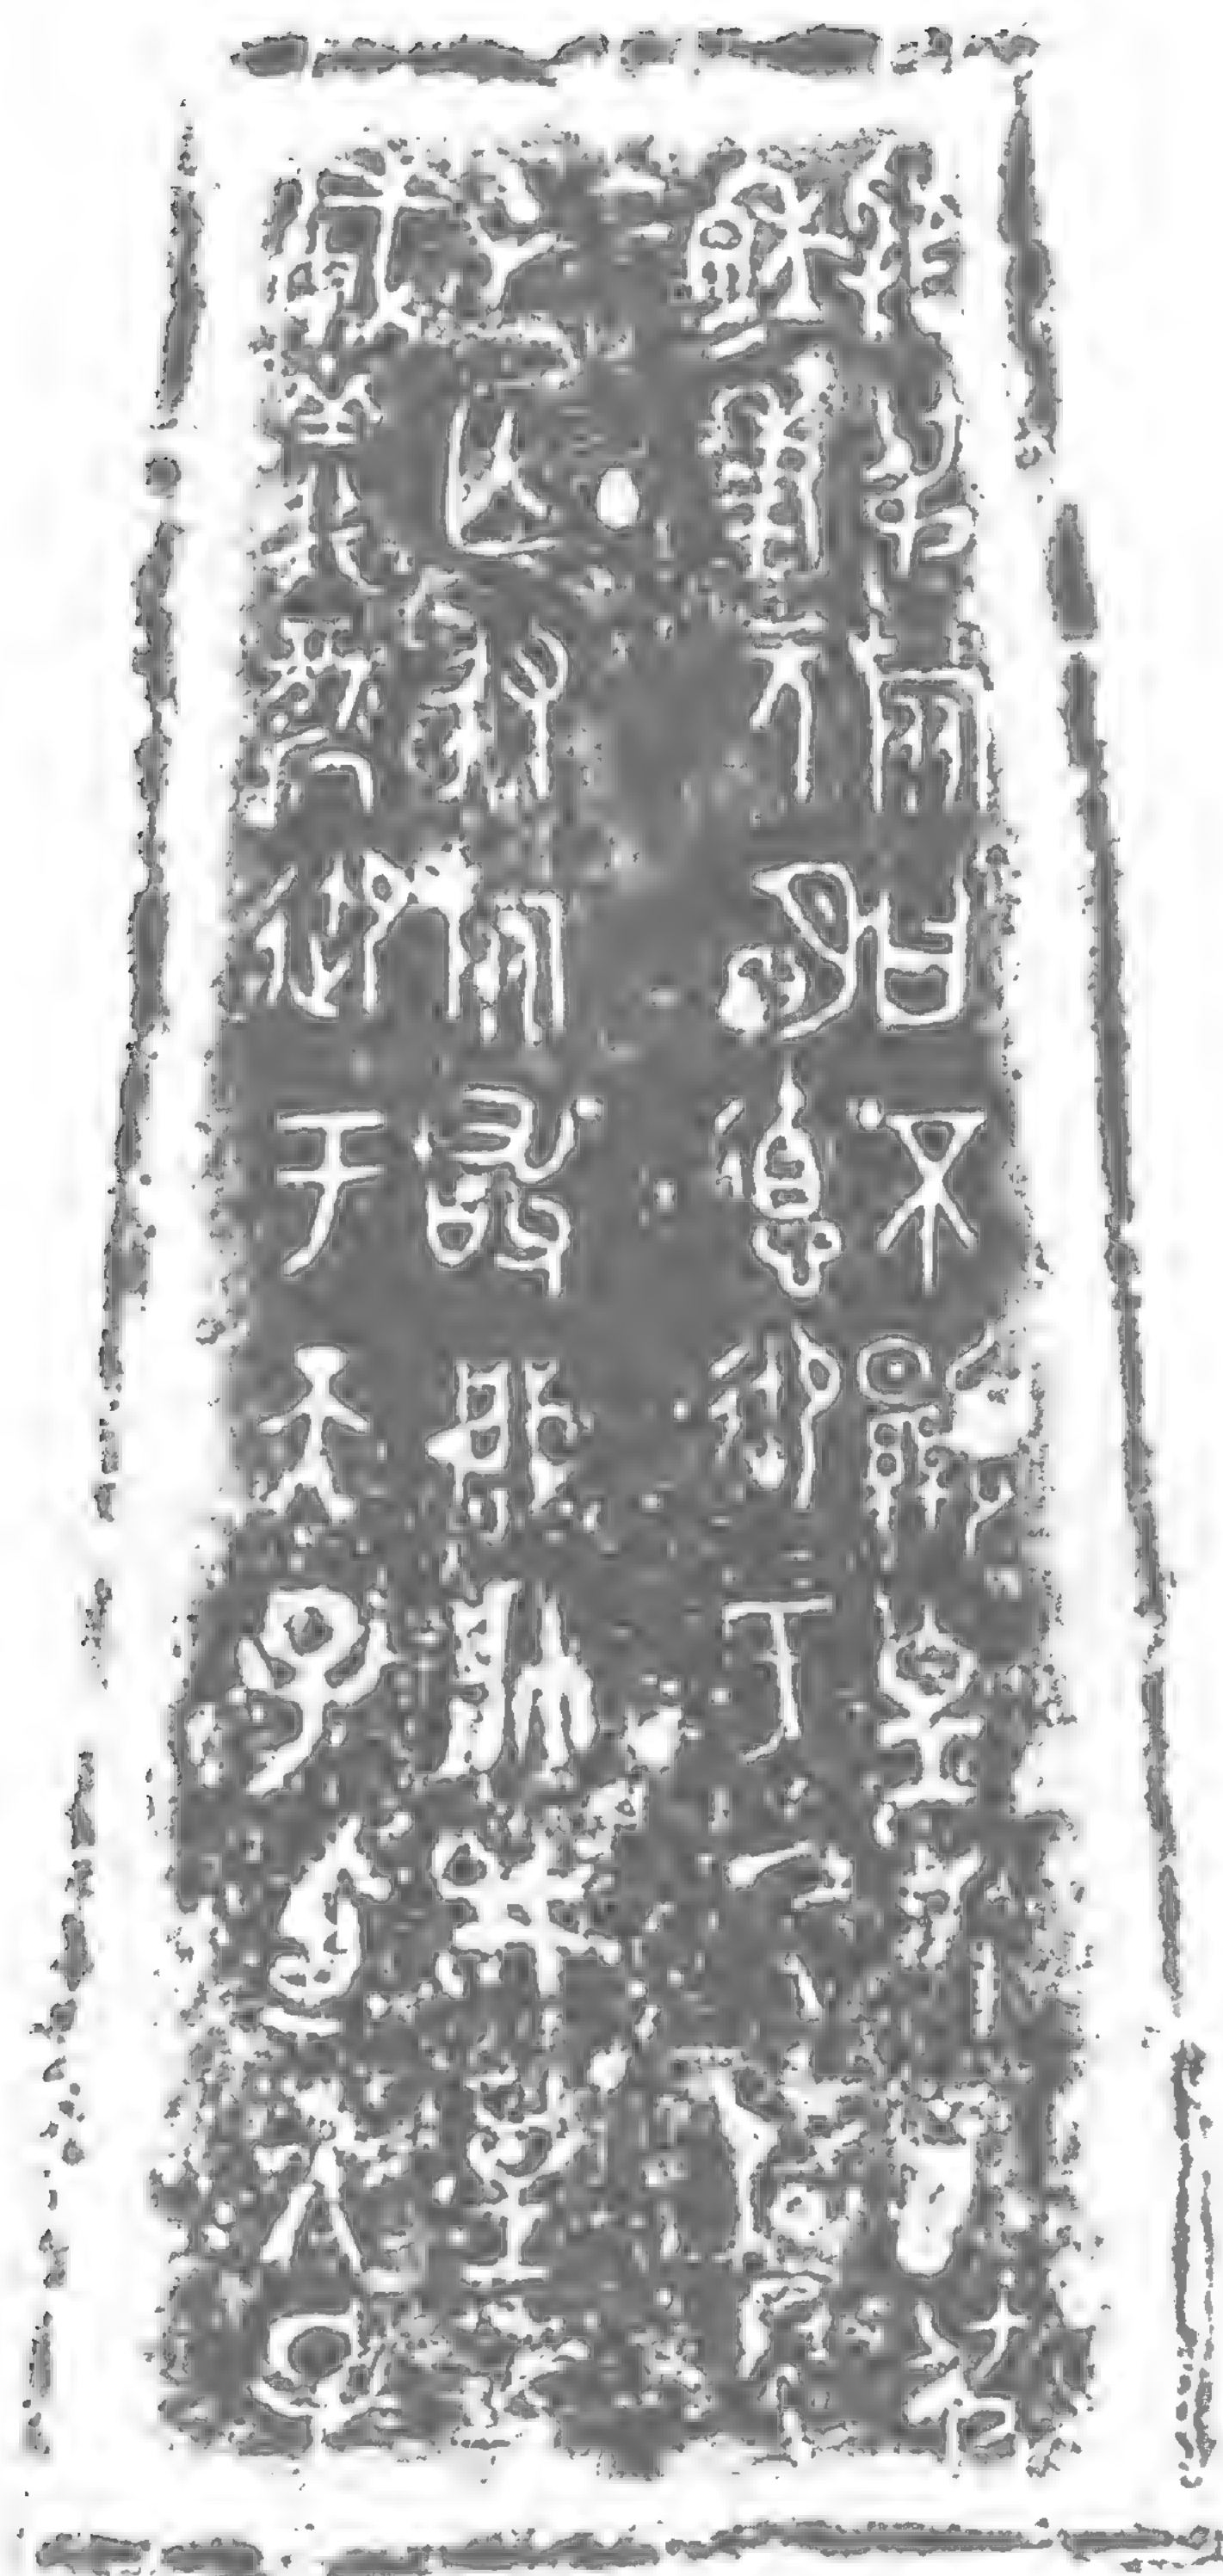 虢叔旅曰不顯皇考叀叔
穆=秉元明德御于厥辟得
屯亡敃旅敢肇帥井皇考
威義御于天子迺天子